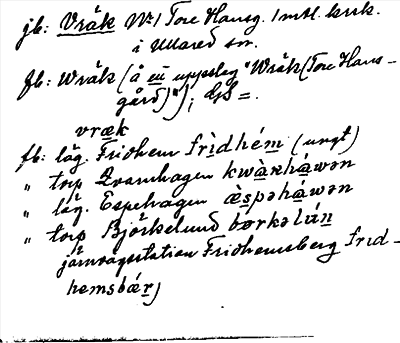 jb: Vråk Nr 1 Tore Hansg. 1 mtl. krsk.
i Ullared sn.
fb: Wråk (å eu uppslag "Wråk (Tore Hans-
gård)"); GS =.
vræk
fb: läg. Fridhem frìdhém (ungt)
" torp Qvarnhagen kwàṇháwən
" läg. Espehagen æ̀spəháwən
" torp Björkelund bœrkəlún
järnvägsstation Fridhemsberg frid-
hemsbær̗j